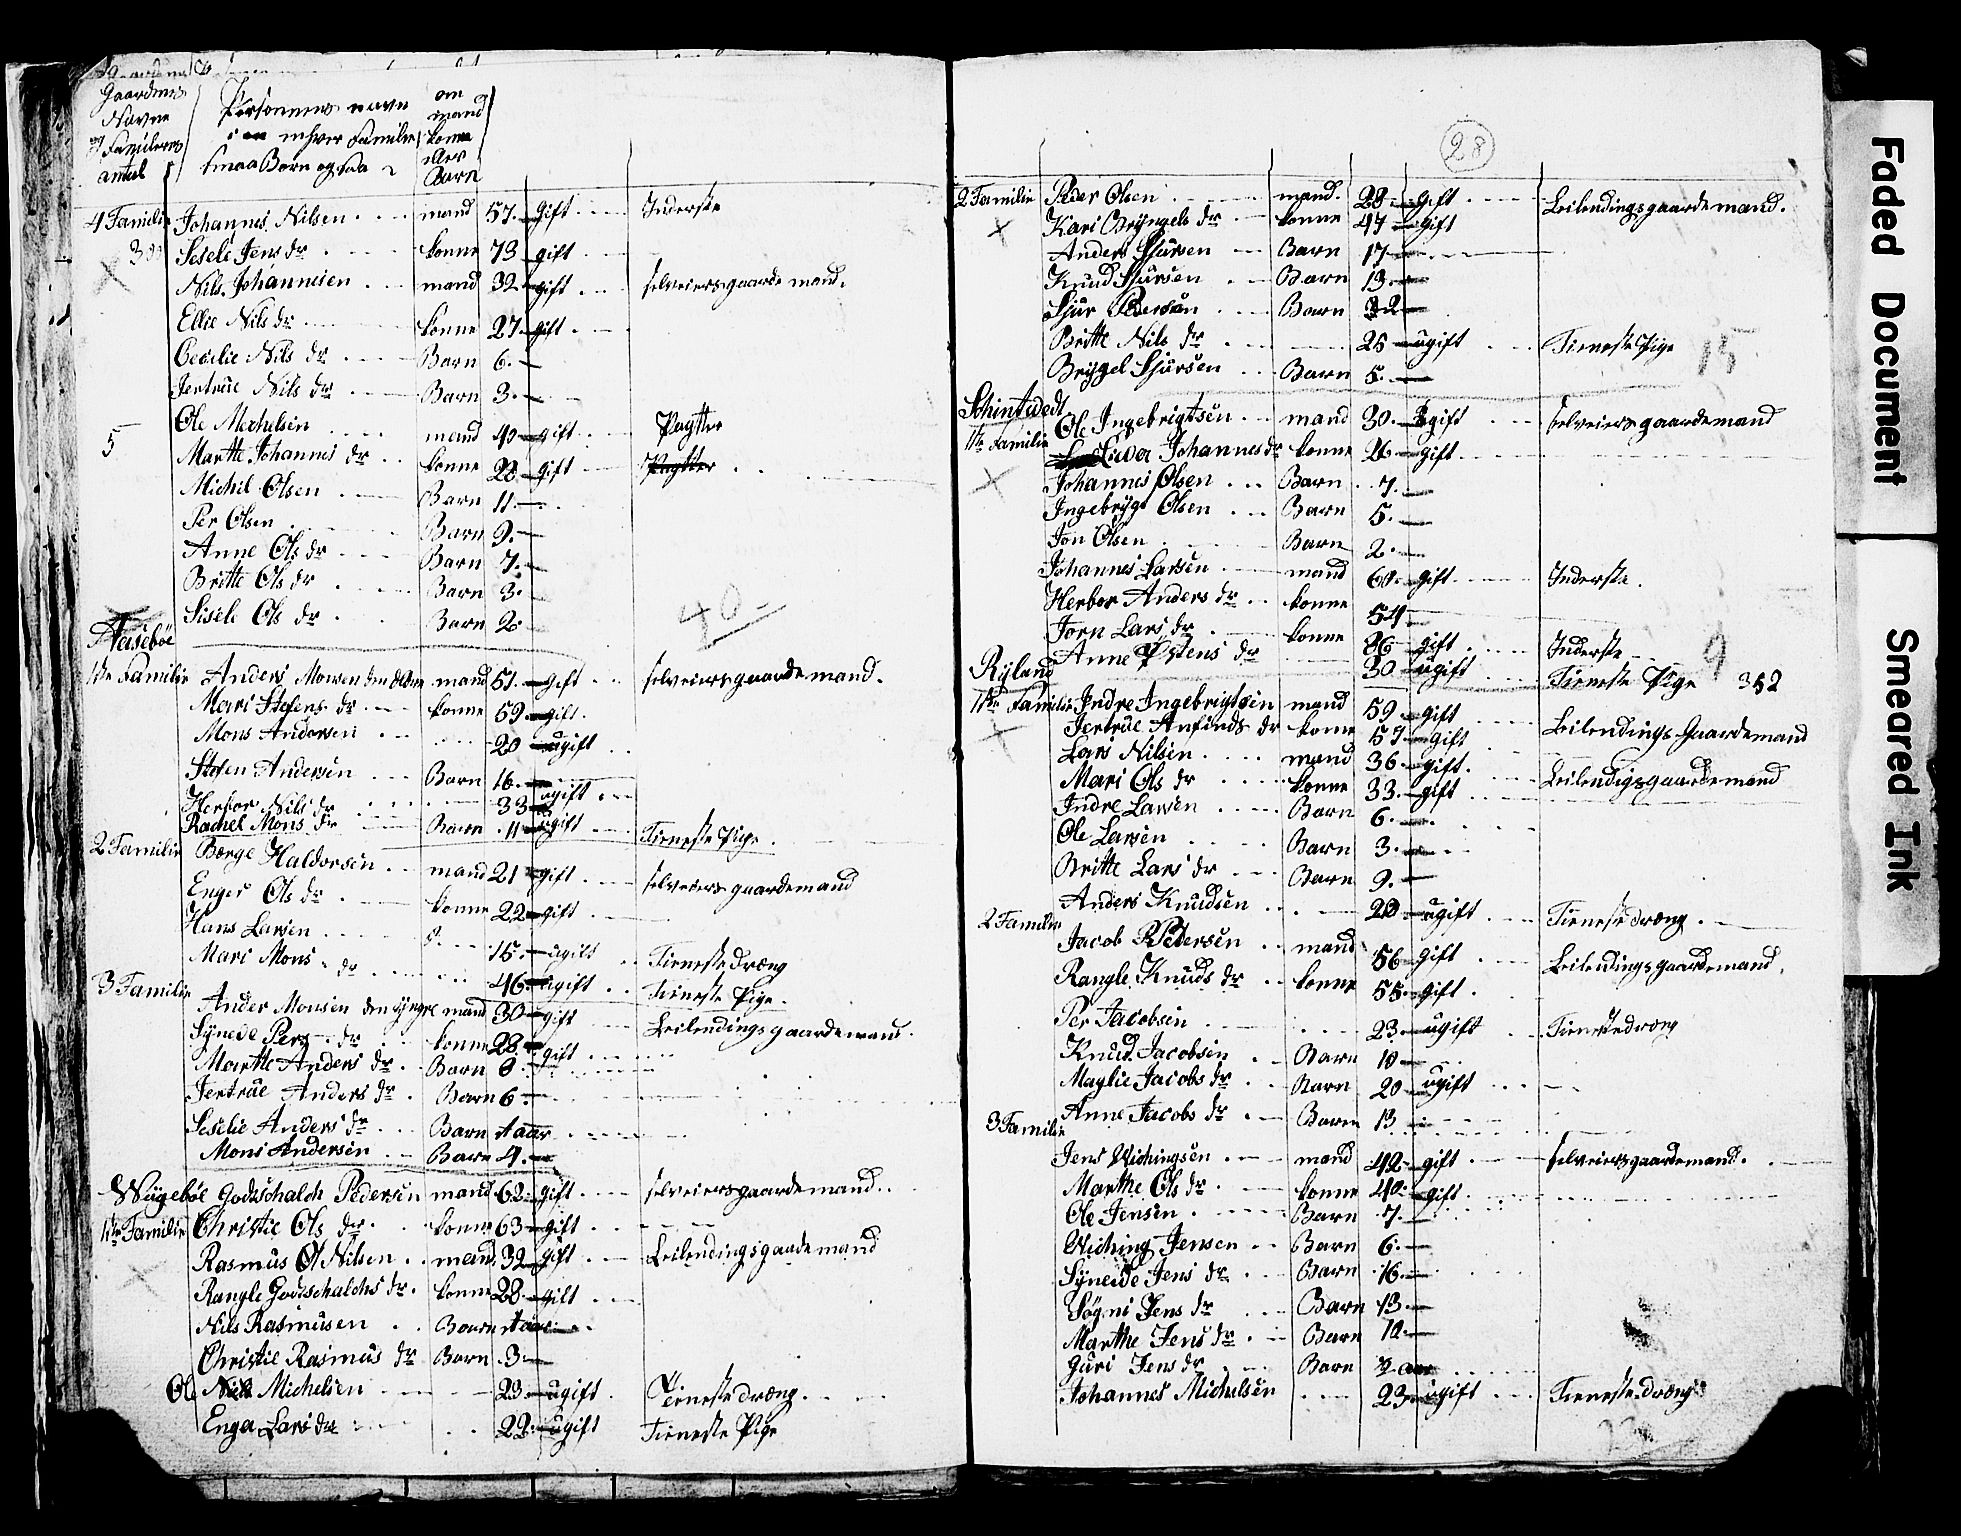 Gaardens Personens navn om
Navne i en enhver Familie mand
og Familiens smaa Børn ogsaa konne
antal eller
Barn
4 Familie Johannes Nilsen mand 57 gift Inderste
Sesele Jens dr konne 73 gift
Nils Johannesen mand 32 gift selveiersgaardemand.
Ellie Nils dr konne 27 gift
Cecelie Nils dr Barn 6
Jertrue Nils dr Barn 3
5 Ole Michelsen mand 40 gift Pagtter
Marthe Johannes dr konne 28 gift
Michil Olsen Barn 11
Per Olsen Barn 9
Anne Ols dr Barn 7
Britte Ols dr Barn 3
Sisele Ols dr Barn 2
40
Aasebøe
1ste Familie Anders Monsen den Elden mand 51 gift selveiersgaardemand.
Mari Stefens dr konne 59 gift
Mons Andersen 20 ugift
Stefen Andersen Barn 16
Herbor Nils dr 33 ugift
Rachel Mons dr Barn 11 ugift Tieneste Pige.
2 Familie Børge Haldorsen mand 21 gift selveiersgaardemand
Enger Ols dr konne 22 gift
Hans Larsen 15 ugift Tienestedræng
Mari Mons dr 46 ugift Tieneste Pige.
3 Familie Ander Monsen den yngre mand 30 gift Leilendingsgaardemand.
Synede Pers dr konne 28 gift
Marthe Anders dr Barn 8
Jertrue Anders dr Barn 6
Seselie Anders dr Barn 1 aar
Mons Andersen Barn 4
Wügebøe Godtschalch Pedersen mand 62 gift selveiersgaardemand.
1ste Familie Christie Ols dr konne 63 gift
Rasmus Ol Nilsen mand 32 gift Leilendingsgaardemand
Rangle Godtschalchs dr konne 28 gift
Nils Rasmusen Barn 1 aar
Christie Rasmus dr Barn 3
Ole Michelsen 23 ugift Tienestedræng
Enger Lars dr 22 ugift Tieneste Pige
28
2 Familie Peder Olsen mand 28 gift Leilendingsgaardemand.
Kari Bryngels dr konne 47 gift
Anders Sjursen Barn 17
Knud Sjursen Barn 13
Sjur Pedersen Barn
Britte Nils dr 25 ugift Tieneste Pige 15
Brygel Sjursen Barn 5
Schintvedt
1te Familie Ole Ingebrigtsen mand 30 gift selveiersgaardemand
Johannes dr konne 26 gift
Johannes Olsen Barn 7
Ingebrygt Olsen Barn 5
Jon Olsen Barn 2
Johannes Larsen mand 60 gift Inderste.
Herbor Anders dr konne 54
Jorn Lars dr konne 86 gift Inderste 9
Anne Østens dr 30 ugift Tieneste Pige 352
Ryland
1ste Familie Indre Ingebrigtsen mand 59 gift Leilendings Gaardemand
Jertrue Anfinds dr konne 57 gift
Lars Nilsen mand 36 gift Leilendigsgaardemand
Mari Ols dr konne 33 gift
Indre Larsen Barn 6
Ole Larsen Barn 3
Britte Lars dr Barn 9
Anders Knudsen ugift Tienestedræng
2 Familie Jacob Pedersen mand 56 gift Leilendingsgaardemand.
Rangle Knuds dr konne 55 gift
Per Jacobsen 23 ugift Tienestedræng
Knud Jacobsen Barn 10
Maglie Jacobs dr Barn 20 ugift
Anne Jacobs dr Barn 13
3 Familie
Jens Wichingsen mand 42 gift selveiersgaardemand.
Marthe Ols dr konne 40 gift
Ole Jensen Barn 7
Wiching Jensen Barn 6
Syneide Jens dr Barn 16
Søgni Jens dr Barn 13
Marthe Jens dr Barn 10
Guri Jens dr Barn aar
Johannes Michelsen 23 ugift Tienestedræng
Faded Document
Smeared Ink